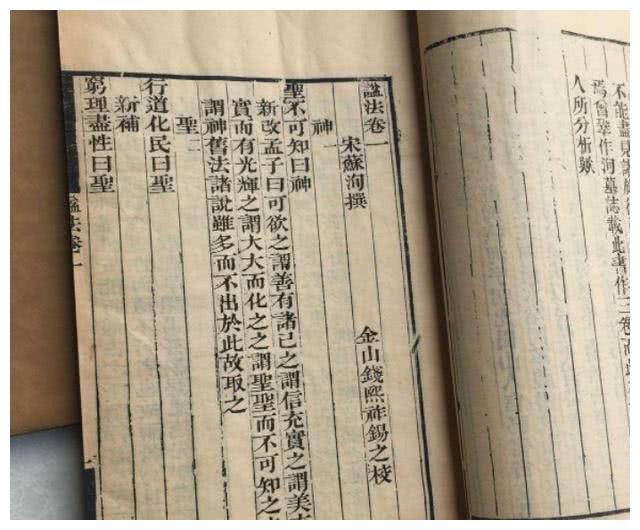 不能盡見
焉曾鞏作洵墓誌載此書作三卷而
人所分析歟
諡法卷一
宋蘇洵撰 金山錢熙祚錫之校
神一
聖不可知曰神
新改孟子曰可欲之謂善有諸己之謂信充實之謂美充
實而有光輝之謂大大而化之之謂聖聖而不可知之
謂神舊法諸說雖多而不出於此故取之
聖二
行道化民曰聖
新補
窮理盡性曰聖
諡法卷一